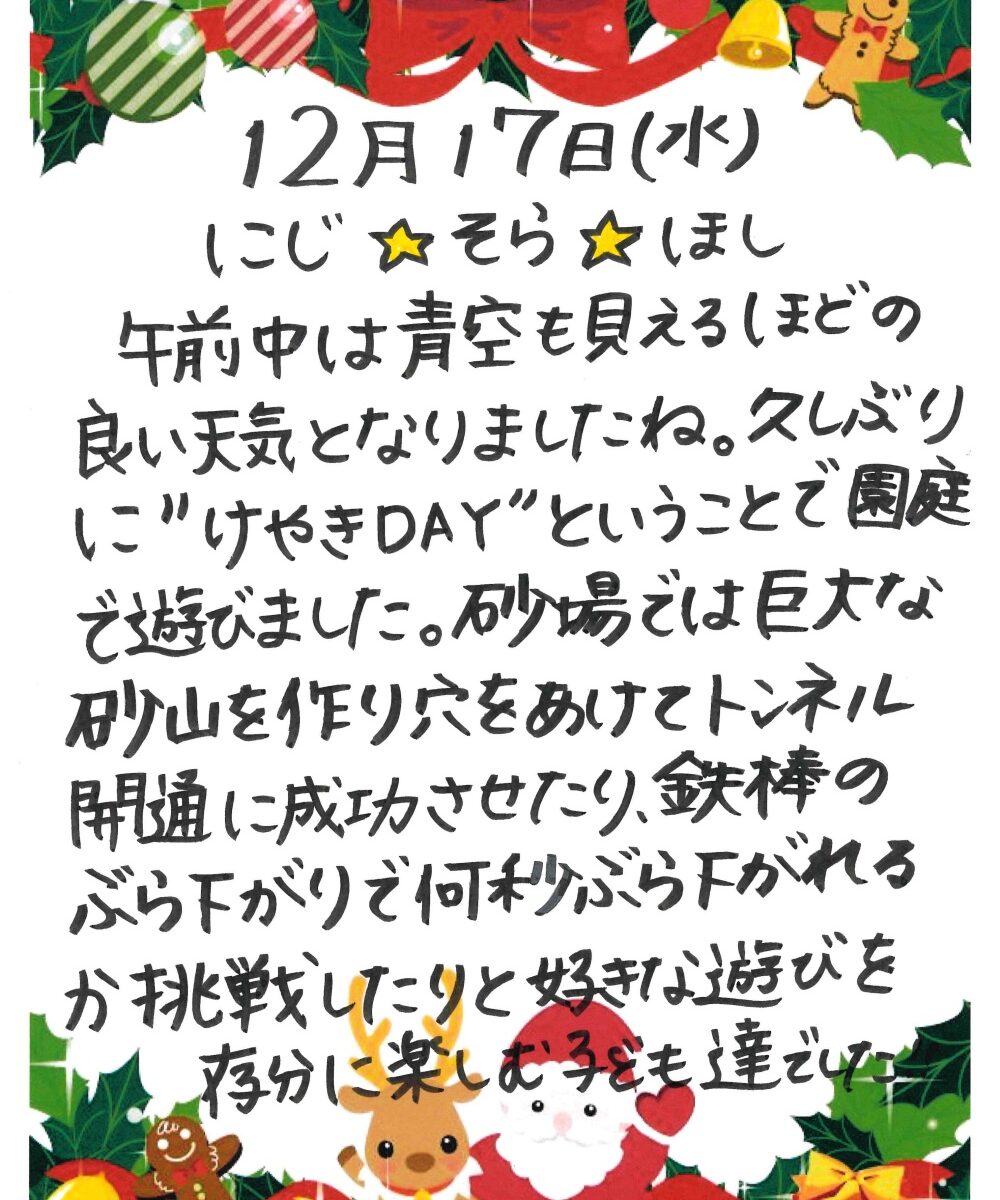 12月17日(水)
にじ☆そら☆ほし
午前中は青空も見えるほどの
良い天気となりましたね。久しぶり
に"けやきDAY"ということで園庭
で遊びました。砂場では巨大な
砂山を作り穴をあけてトンネル
開通に成功させたり、鉄棒の
ぶら下がりで何秒ぶら下がれる
か挑戦したりと好きな遊びを
存分に楽しむ子ども達でした